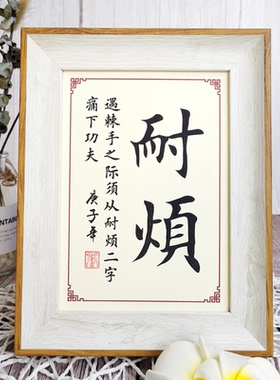 耐煩
遇棘手之际须从耐煩二字
痛下功夫
庚子年